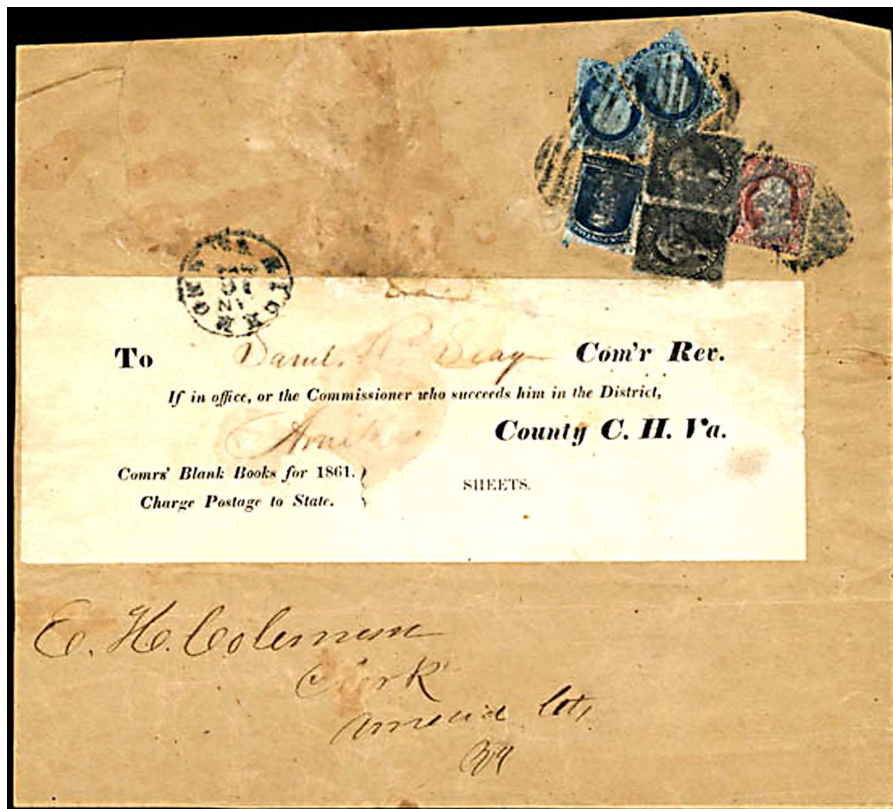 RICHMOND
To Saml. R Seay Com'r Rev.
If in office, or the Commissioner who succeeds him in the District,
County C. H. Va.
Comrs' Blank Books for 1861.
Charge Postage to State.
SHEETS.
E. H. Coleman
Clerk
Amelia Cts,
Va